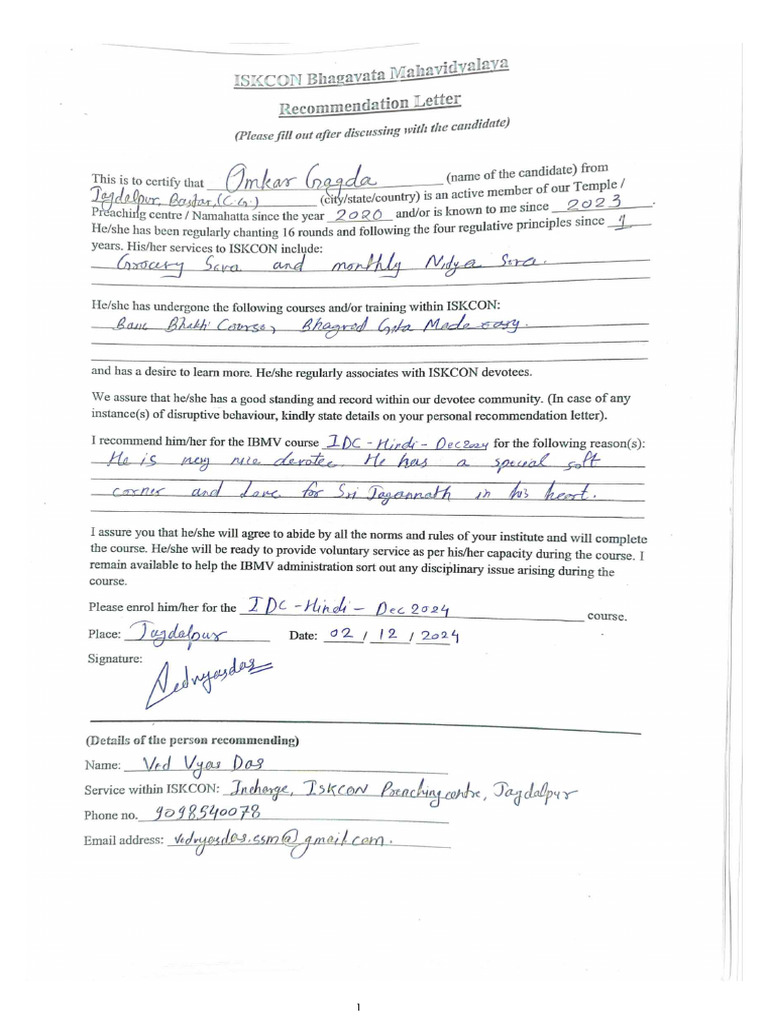 ISKCON Bhagavata Mahavidyalaya
Recommendation Letter
(Please fill out after discussing with the candidate)
This is to certify that Omkar Gagda (name of the candidate) from
Jagdalpur, Bastar, (C.G.) (city/state/country) is an active member of our Temple /
Preaching centre / Namahatta since the year 2020 and/or is known to me since 2023
He/she has been regularly chanting 16 rounds and following the four regulative principles since 1
years. His/her services to ISKCON include:
Grocery Seva and monthly Nidya Seva.
He/she has undergone the following courses and/or training within ISKCON:
Bhakti Course, Made easy.
and has a desire to learn more. He/she regularly associates with ISKCON devotees.
We assure that he/she has a good standing and record within our devotee community. (In case of any
instance(s) of disruptive behaviour, kindly state details on your personal recommendation letter).
I recommend him/her for the IBMV course IDC - Hindi - Dec 2024 for the following reason(s):
He is very nice devotee. He has a special soft
corner and Love for Sri Jagannath in his heart.
I assure you that he/she will agree to abide by all the norms and rules of your institute and will complete
the course. He/she will be ready to provide voluntary service as per his/her capacity during the course. I
remain available to help the IBMV administration sort out any disciplinary issue arising during the
course.
Please enrol him/her for the IDC - Hindi - Dec 2024 course.
Place: Jagdalpur Date: 02 / 12 / 2024
Signature:
Vedvyasdas
(Details of the person recommending)
Name: Ved Vyas Das
Service within ISKCON: Incharge, ISKCON Preaching centre, Jagdalpur
Phone no. 9098540078
Email address: vedvyasdas.ssm@gmail.com.
1